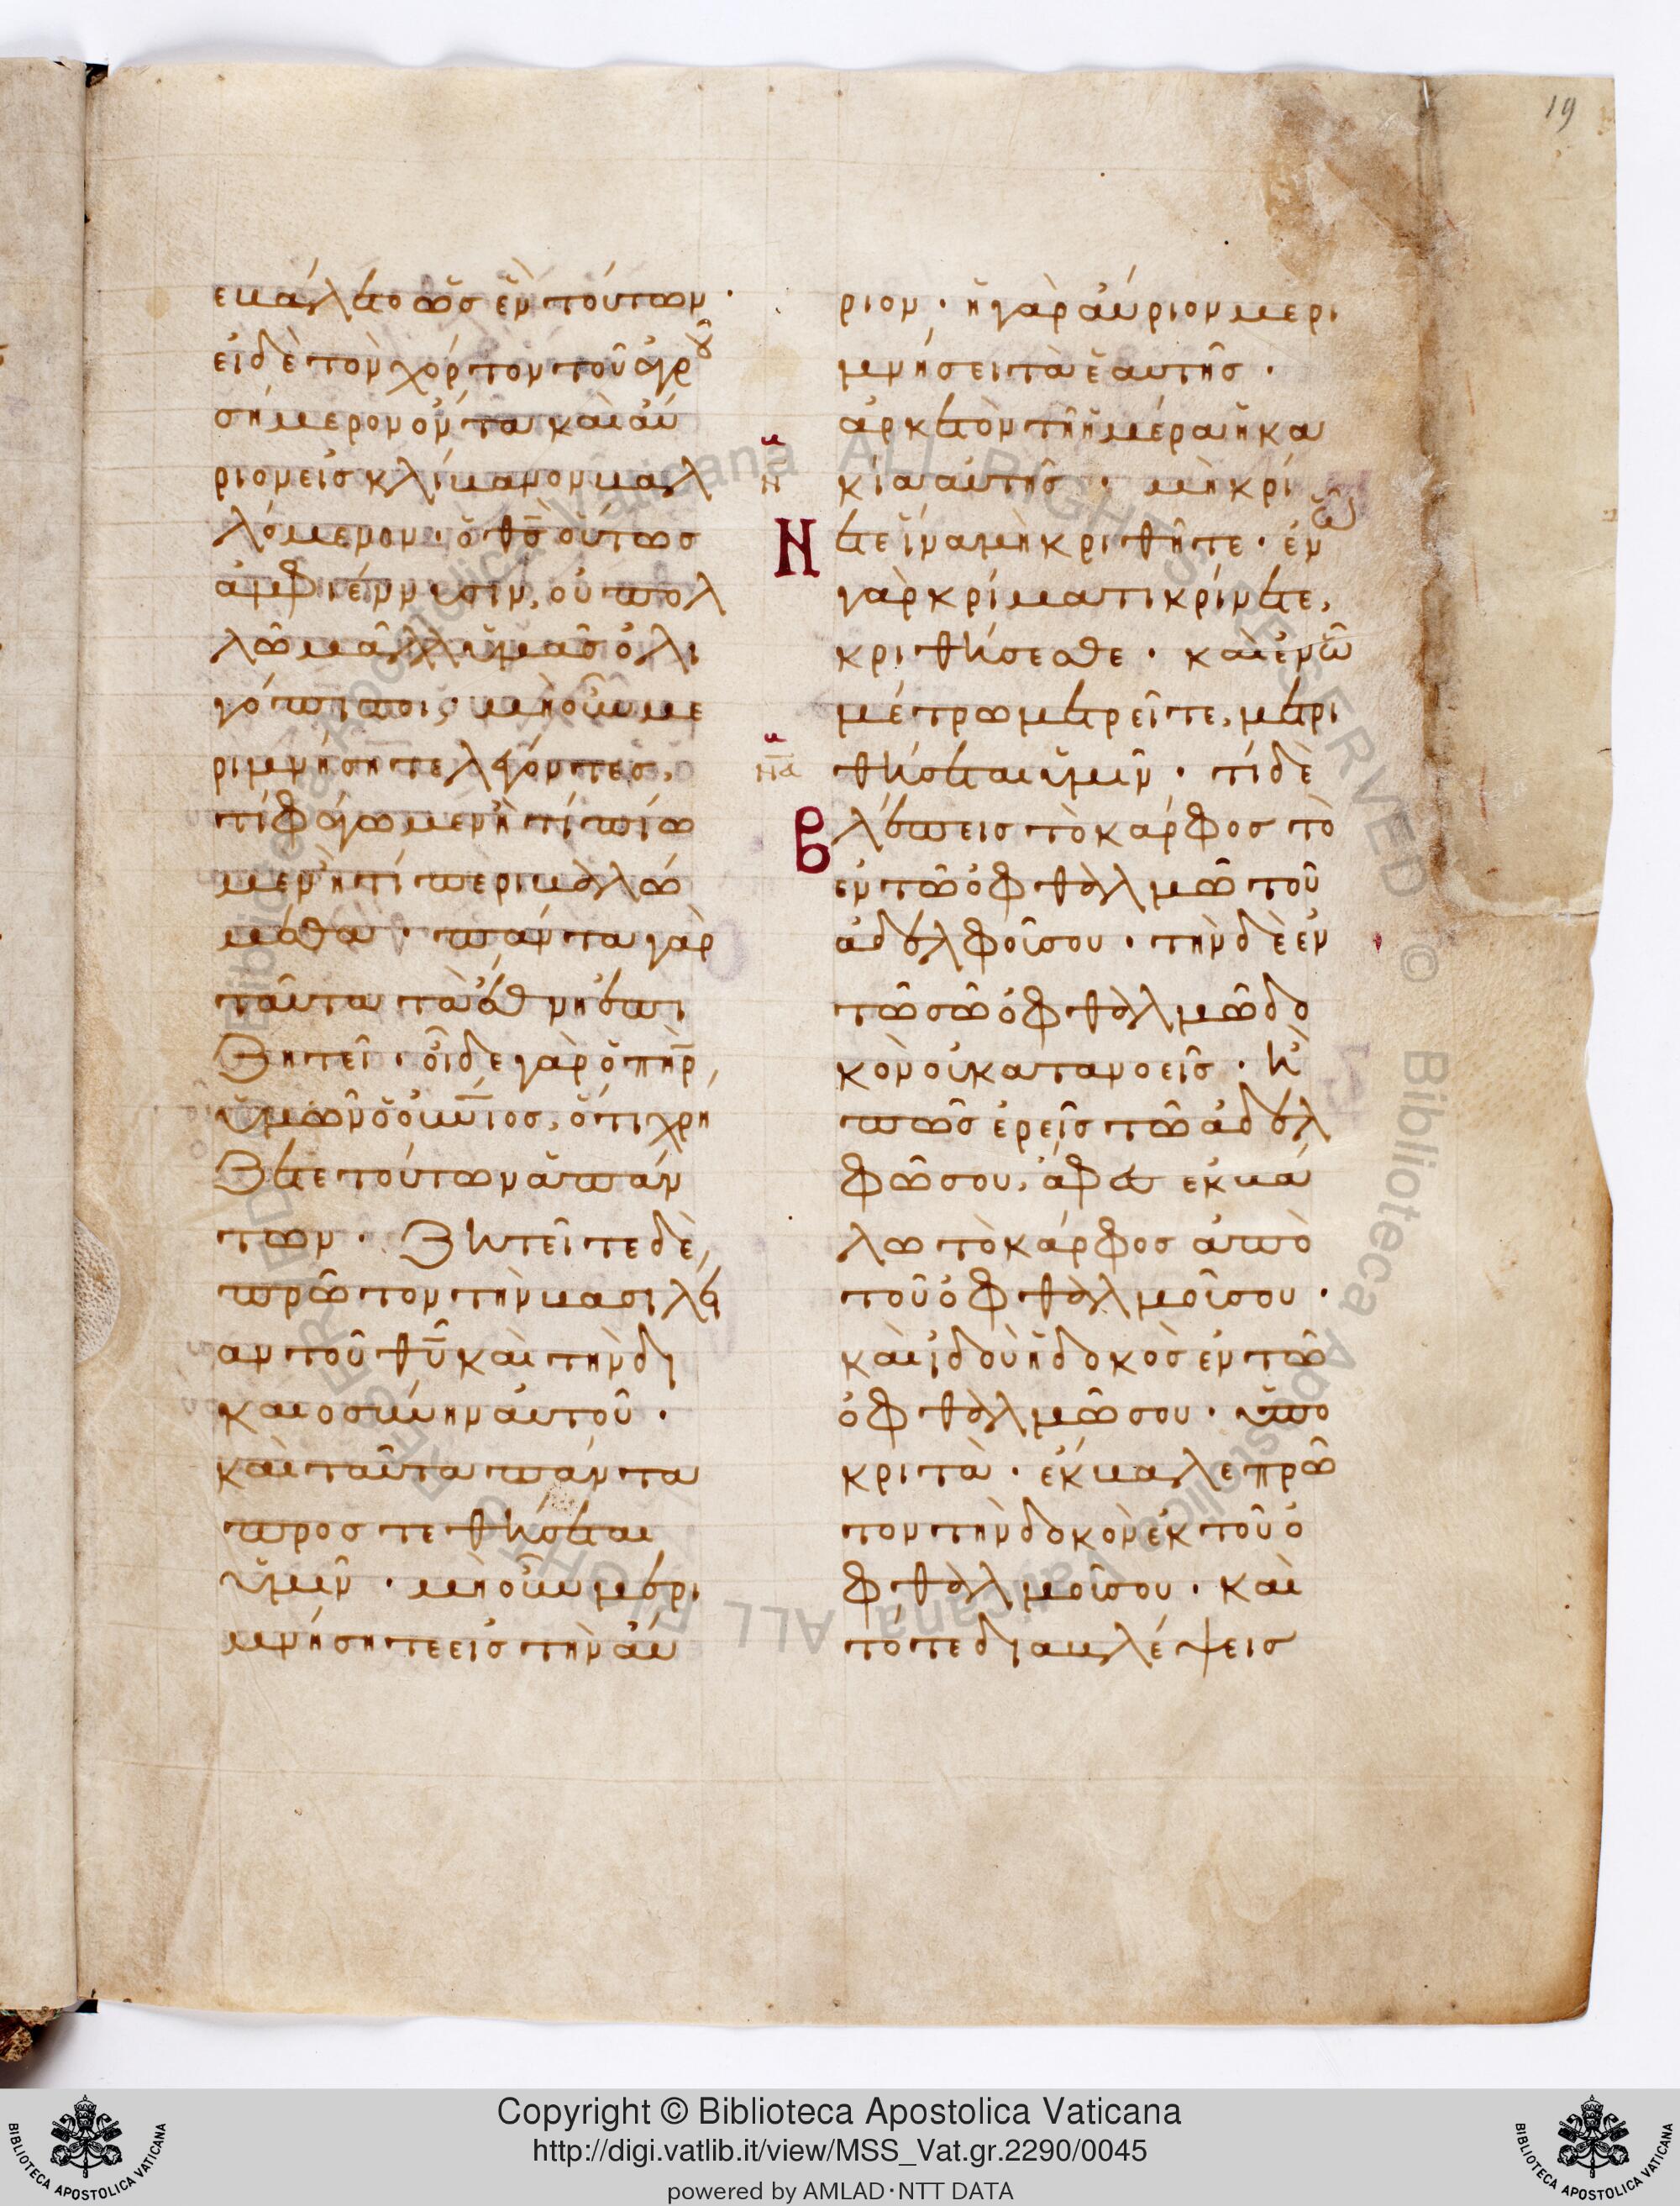 19
εβάλετο ὡς ἓν τούτων·
εἰ δὲ τὸν χόρτον τοῦ ἀγροῦ
σήμερον ὄντα καὶ αὔ
ριον εἰς κλίβανον βαλ
λόμενον· ὁ θς οὕτως
ἀμφιέννυσιν, οὐ πολ
λῶ μᾶλλον ὑμᾶς ὀλι
γόπιστοι· μὴ οὖν με
ριμνήσητε λέγοντες,
τί φάγωμεν ἢ τί πίω
μεν ἢ τί περιβαλώ
μεθα· πάντα γὰρ
ταῦτα τὰ ἔθνη ἐπι
ζητεῖ· οἶδε γὰρ ὁ πηρ
ὑμῶν ὁ οὐνιος, ὅτι χρή
ζετε τούτων ἁπάν
των· ζητεῖτε δὲ
πρῶτον τὴν βασιλεί
αν τοῦ θυ καὶ τὴν δι
καιοσύνην αὐτοῦ·
καὶ ταῦτα πάντα
προστεθήσεται
ὑμῖν· μὴ οὖν μερι
μνήσητε εἰς τὴν αὔ
ριον· ἡ γὰρ αὔριον μερι
μνήσει τὰ ἑαυτῆς·
ἀρκετὸν τῇ ἡμέρα ἡ κα
κία αὐτῆς· μὴ κρί
νετε ἵνα μὴ κριθῆτε· ἐν ὧ
γὰρ κρίματι κρίνετε,
κριθήσεσθε· καὶ ἐν ὧ
μέτρω μετρεῖτε, μετρι
θήσεται ὑμῖν· τί δὲ
βλέπεις τὸ κάρφος τὸ
ἐν τῶ ὀφθαλμῶ τοῦ
ἀδελφοῦ σου· τὴν δὲ ἐν
τῶ σῶ ὀφθαλμῶ δο
κὸν οὐ κατανοεῖς· ἢ
πῶς ἐρεῖς τῶ ἀδελ
φῶ σου, ἄφες ἐκβά
λω τὸ κάρφος ἀπὸ
τοῦ ὀφθαλμοῦ σου·
καὶ ἰδοὺ ἡ δοκὸς ἐν τῶ
ὀφθαλμῶ σου· ὑπο
κριτὰ· ἔκβαλε πρῶ
τον τὴν δοκὸν ἐκ τοῦ ὀ
φθαλμοῦ σου· καὶ
τότε διαβλέψεις
Copyright © Biblioteca Apostolica Vaticana
http://digi.vatlib.it/view/MSS_Vat.gr.2290/0045
powered by AMLAD·NTT DATA